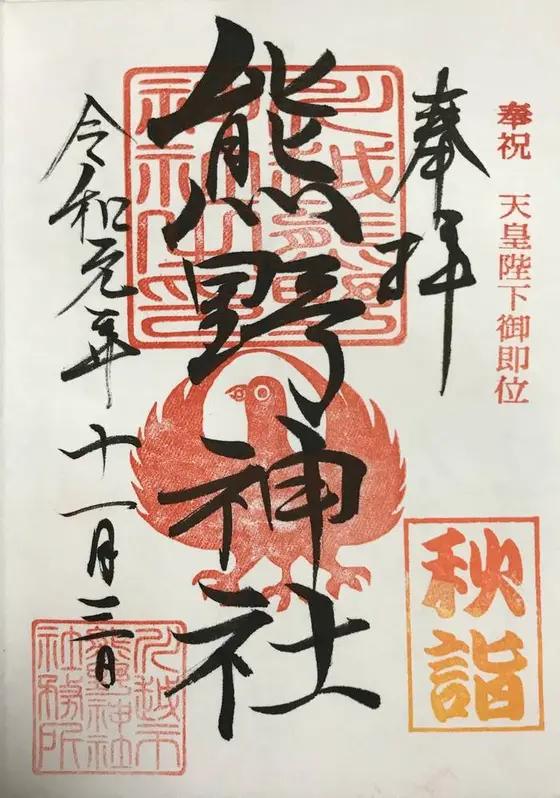 奉祝 天皇陛下御即位
奉拝
川越熊野
神社之印
熊野神社
令和元年十一月三日
秋詣
川越市
熊野神社
社務所